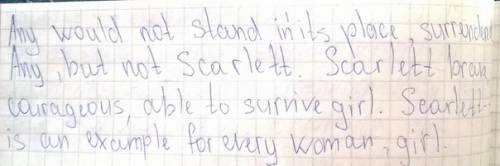 Any would not stand in its place, surrender
Any, but not Scarlett. Scarlett brave
courageous, able to survive girl. Scarlett -
is an example for every woman, girl.